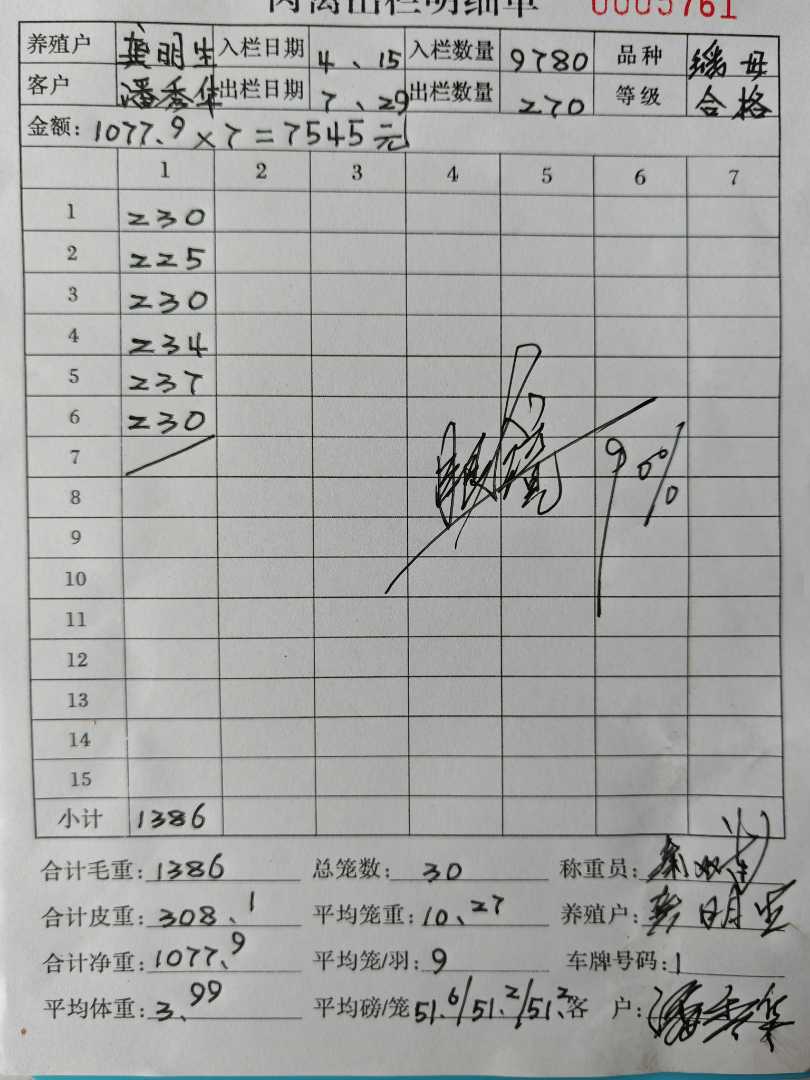 肉禽出栏明细单 0005761
养殖户 龚明生 入栏日期 4、15 入栏数量 9780 品种 母
客户 潘秀华 出栏日期 7、29 出栏数量 270 等级 合格
金额: 1077.9×7=7545元
1 2 3 4 5 6 7
1 230
2 225
3 230
4 234
5 237
6 230
7
8
9
10
11
12
13
14
15
90%
小计 1386
合计毛重: 1386 总笼数: 30 称重员:
合计皮重: 308.1 平均笼重: 10、27 养殖户: 龚明生
合计净重: 1077.9 平均笼/羽: 9 车牌号码: 1
平均体重: 3.99 平均磅/笼 51.6/51.2/51.2 客 户: 潘秀华